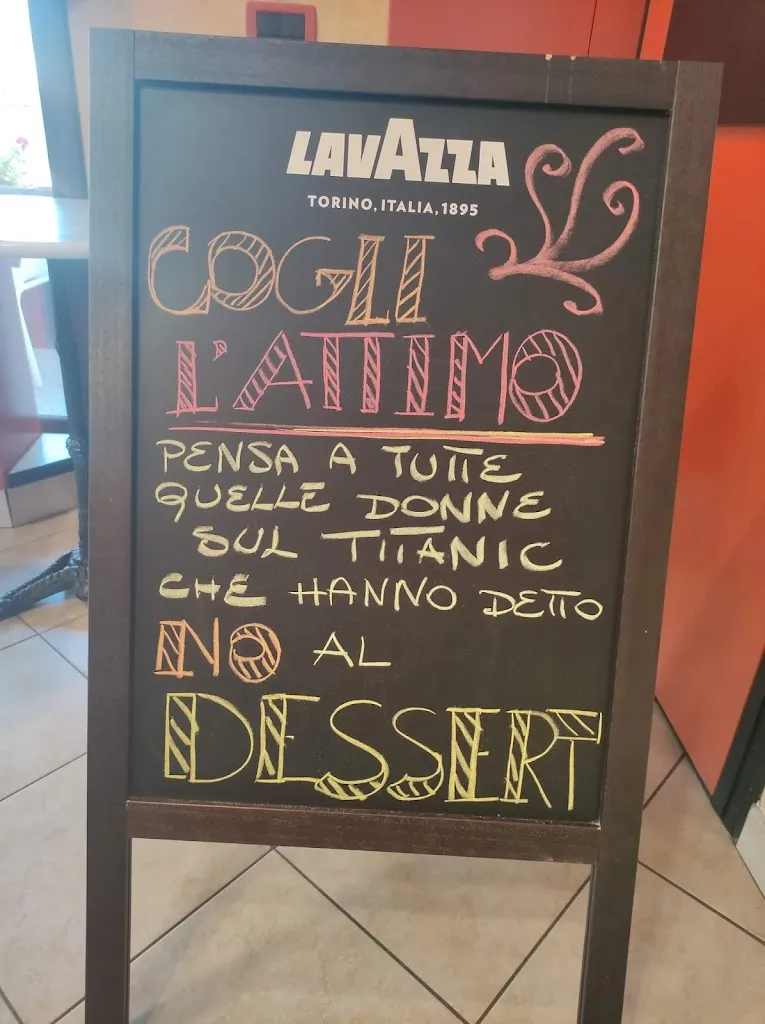 LAVAZZA
TORINO, ITALIA, 1895
COGLI
L'ATTIMO
PENSA A TUTTE
QUELLE DONNE
SUL TITANIC
CHE HANNO DETTO
NO AL
DESSERT